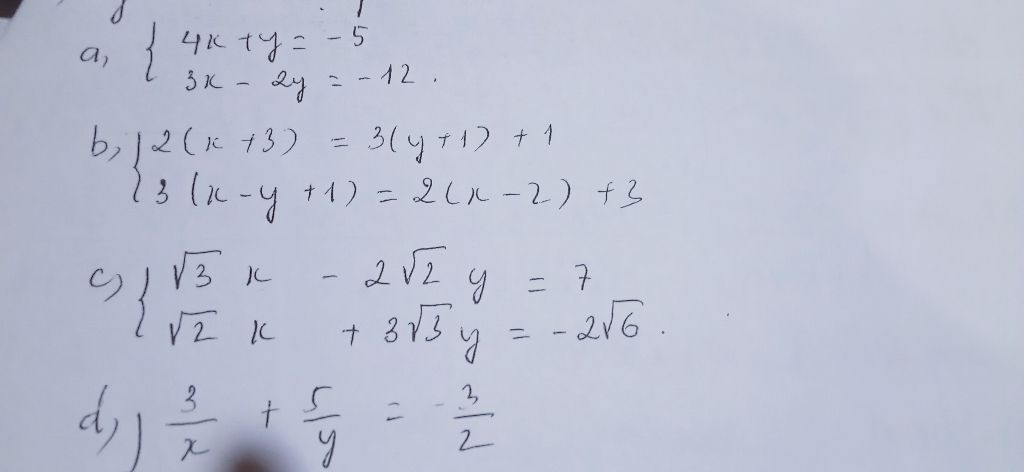 a, { 4x + y = -5
3x - 2y = -12.
b, { 2(x + 3) = 3(y + 1) + 1
3(x - y + 1) = 2(x - 2) + 3
c) { √3 x - 2√2 y = 7
√2 x + 3√3 y = -2√6.
d, { 3/x + 5/y = -3/2